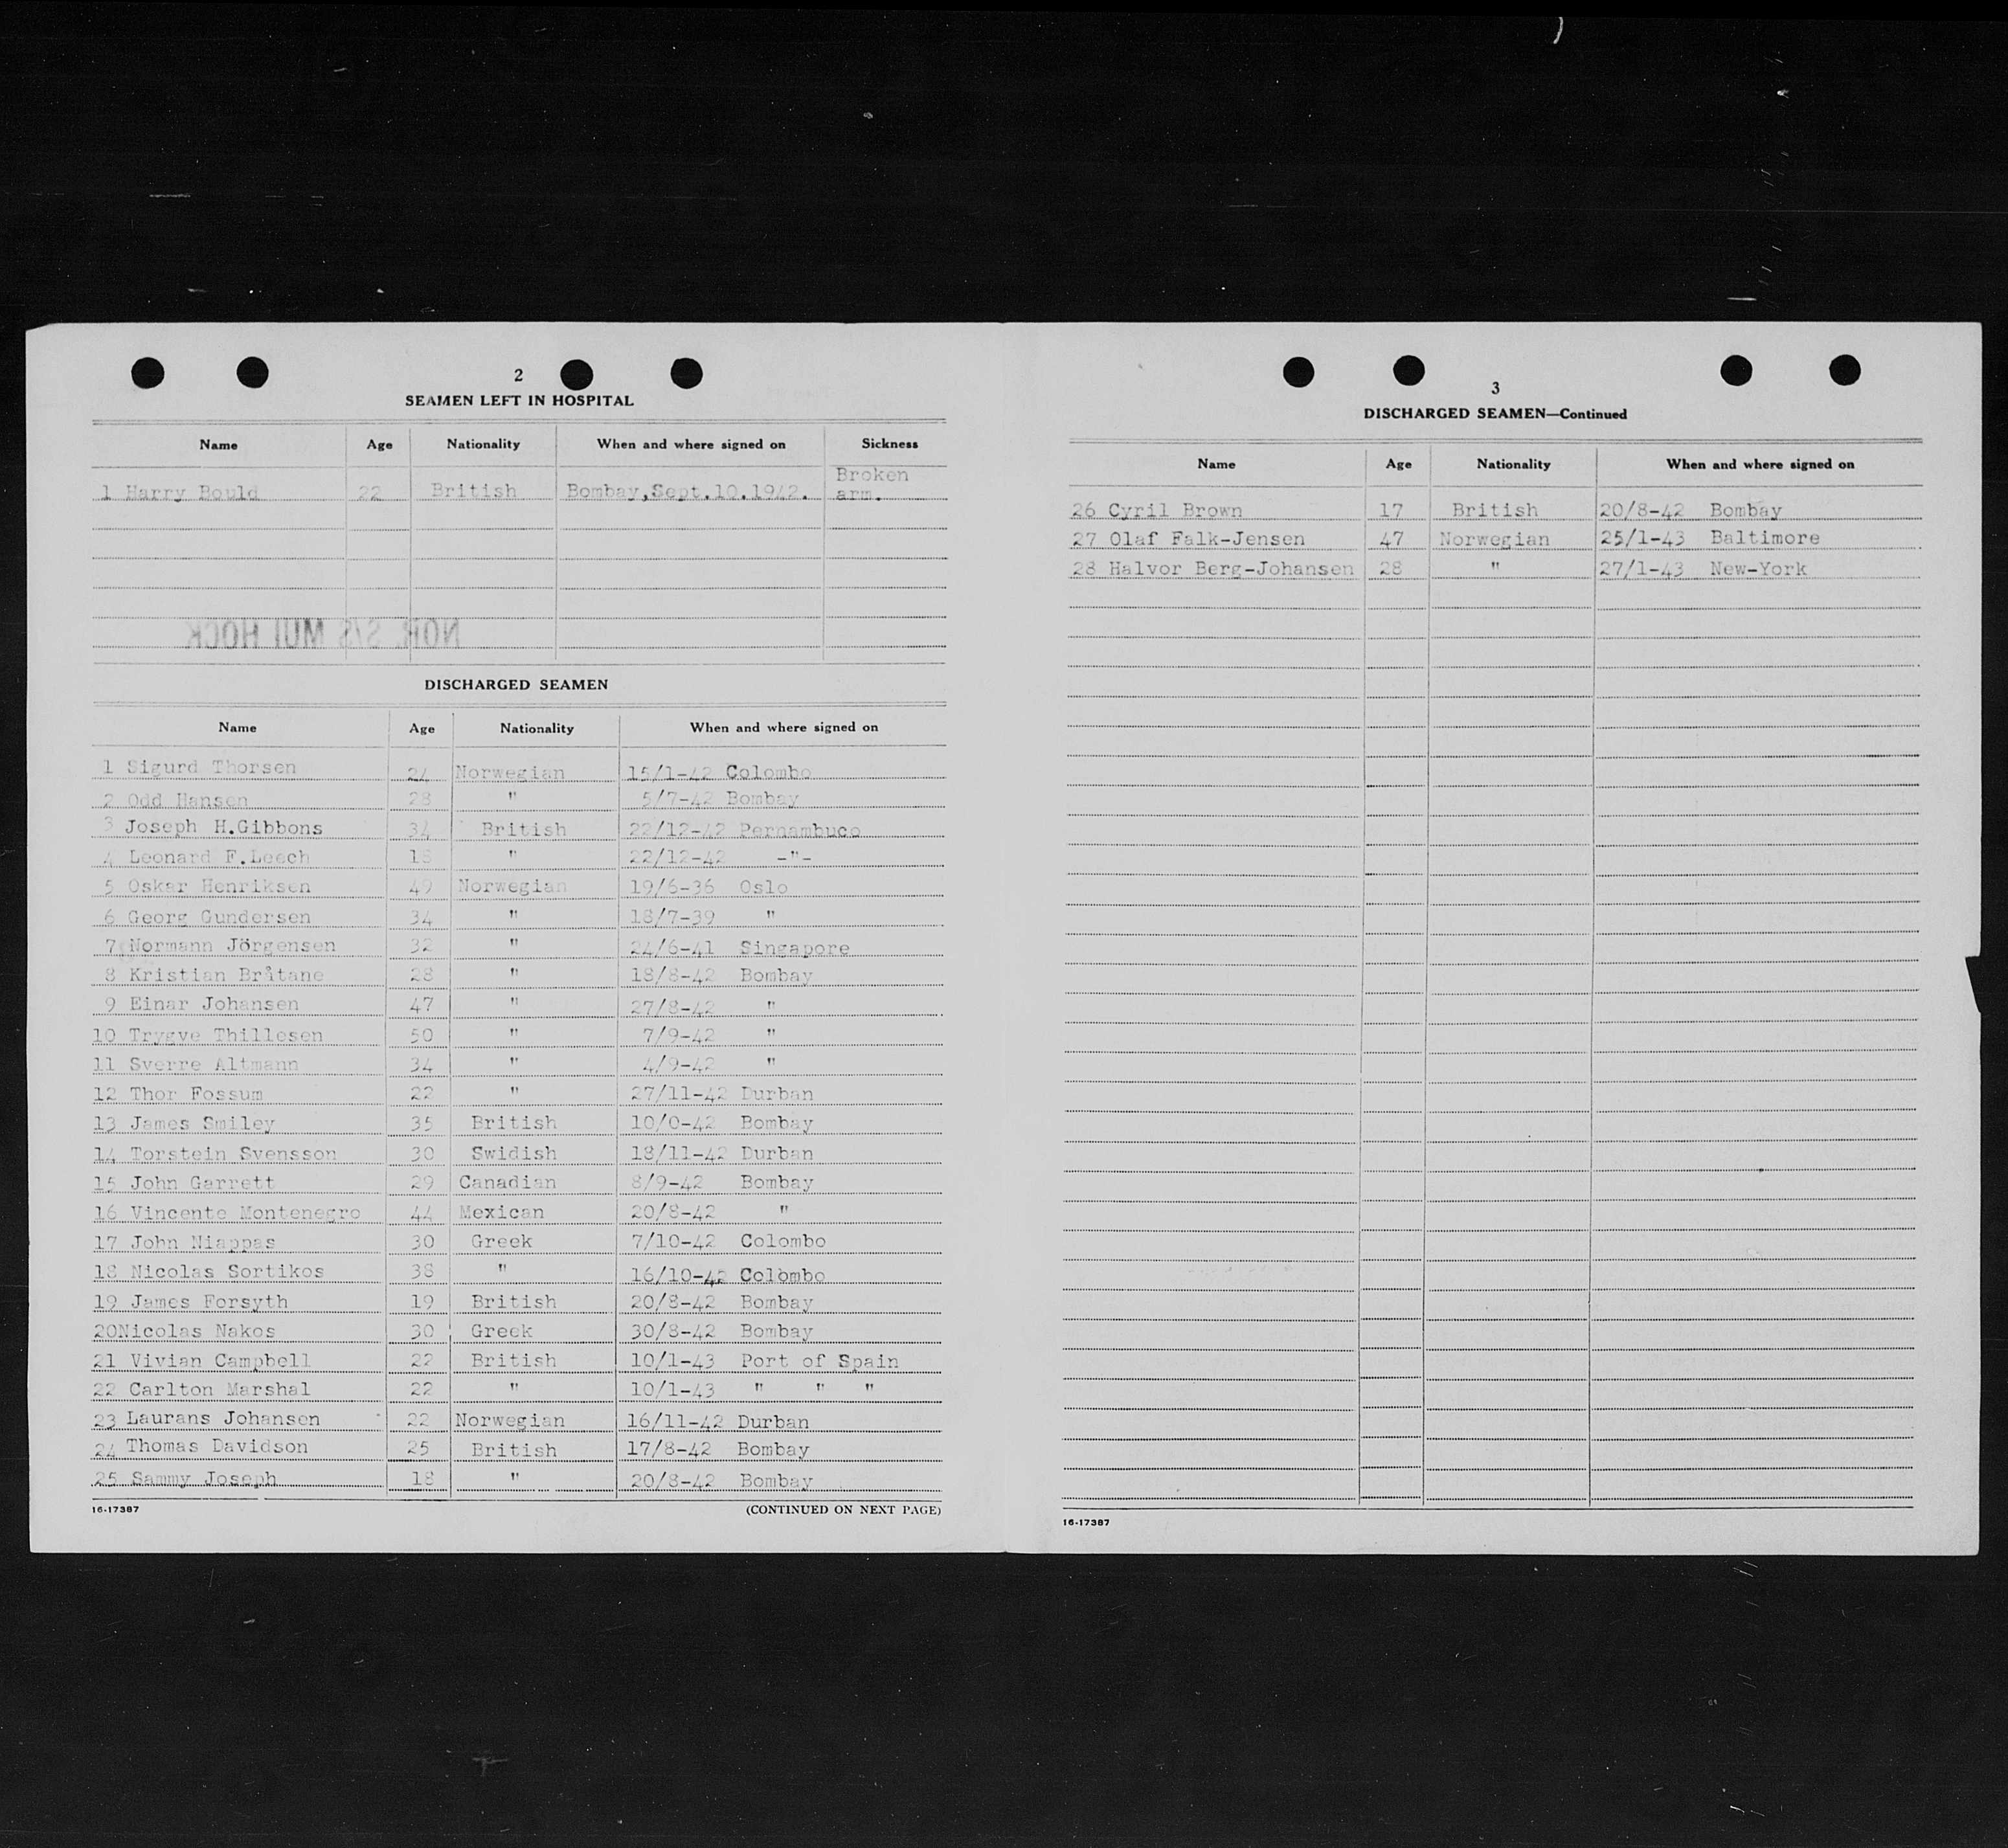 2
SEAMEN LEFT IN HOSPITAL
Name Age Nationality When and where signed on Sickness
1 Harry Bould 22 British Bombay,Sept.10.1942. Broken arm.
NOR. S/S MUI HOCK
DISCHARGED SEAMEN
Name Age Nationality When and where signed on
1 Sigurd Thorsen 24 Norwegian 15/1-42 Colombo
2 Odd Hansen 28 " 5/7-42 Bombay
3 Joseph H.Gibbons 34 British 22/12-42 Pernambuco
4 Leonard F.Leech " 22/12-42 -"-
5 Oskar Henriksen 49 Norwegian 19/6-36 Oslo
6 Georg Gundersen 34 " 18/7-39 "
7 Normann Jörgensen 32 " 24/6-41 Singapore
8 Kristian Bråtane 28 " 18/8-42 Bombay
9 Einar Johansen 47 " 27/8-42 "
10 Trygve Thillesen 50 " 7/9-42 "
11 Sverre Altmann 34 " 4/9-42 "
12 Thor Fossum 22 " 27/11-42 Durban
13 James Smiley 35 British 10/0-42 Bombay
14 Torstein Svensson 30 Swidish 18/11-42 Durban
15 John Garrett 29 Canadian 8/9-42 Bombay
16 Vincente Montenegro 44 Mexican 20/8-42 "
17 John Niappas 30 Greek 7/10-42 Colombo
18 Nicolas Sortikos 38 " 16/10-42 Colombo
19 James Forsyth 19 British 20/8-42 Bombay
20Nicolas Nakos 30 Greek 30/8-42 Bombay
21 Vivian Campbell 22 British 10/1-43 Port of Spain
22 Carlton Marshal 22 " 10/1-43 " " "
23 Laurans Johansen 22 Norwegian 16/11-42 Durban
24 Thomas Davidson 25 British 17/8-42 Bombay
25 Sammy Joseph 18 " 20/8-42 Bombay
16-17387 (CONTINUED ON NEXT PAGE)
3
DISCHARGED SEAMEN—Continued
Name Age Nationality When and where signed on
26 Cyril Brown 17 British 20/8-42 Bombay
27 Olaf Falk-Jensen 47 Norwegian 25/1-43 Baltimore
28 Halvor Berg-Johansen 28 " 27/1-43 New-York
16-17387